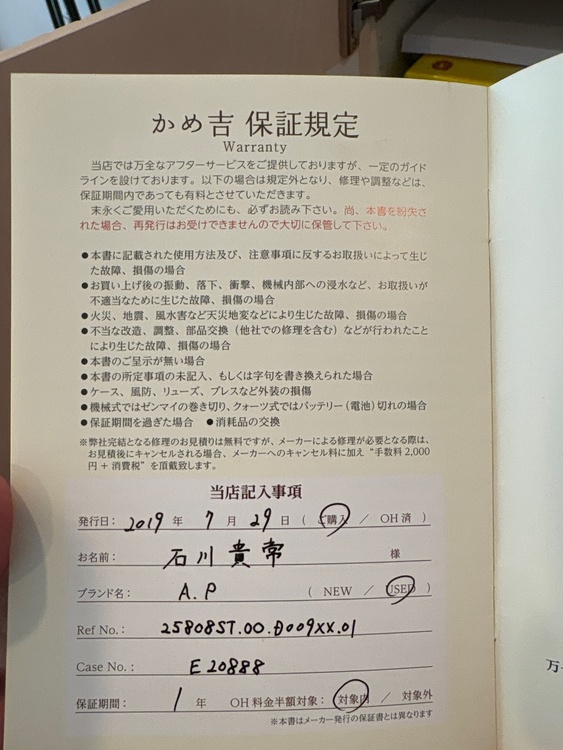 かめ吉 保証規定
Warranty
当店では万全なアフターサービスをご提供しておりますが、一定のガイド
ラインを設けております。以下の場合は規定外となり、修理や調整などは、
保証期間内であっても有料とさせていただきます。
末永くご愛用いただくためにも、必ずお読み下さい。尚、本書を紛失さ
れた場合、再発行はお受けできませんので大切に保管して下さい。
●本書に記載された使用方法及び、注意事項に反するお取扱いによって生じ
た故障、損傷の場合
●お買い上げ後の振動、落下、衝撃、機械内部への浸水など、お取扱いが
不適当なために生じた故障、損傷の場合
●火災、地震、風水害など天災地変などにより生じた故障、損傷の場合
●不当な改造、調整、部品交換（他社での修理を含む）などが行われたこと
により生じた故障、損傷の場合
●本書のご呈示が無い場合
●本書の所定事項の未記入、もしくは字句を書き換えられた場合
●ケース、風防、リューズ、ブレスなど外装の損傷
●機械式ではゼンマイの巻き切り、クォーツ式ではバッテリー（電池）切れの場合
●保証期間を過ぎた場合 ●消耗品の交換
※弊社完結となる修理のお見積りは無料ですが、メーカーによる修理が必要となる際は、
お見積後にキャンセルされる場合、メーカーへのキャンセル料に加え“手数料2,000
円＋消費税”を頂戴致します。
当店記入事項
発行日： 2019 年 7 月 29 日（ ご購入 ／ OH済 ）
お名前： 石川 貴常 様
ブランド名： A.P （ NEW ／ USED ）
Ref No.： 25808ST.00.D009XX.01
Case No.： E20888
保証期間： 1 年 OH料金半額対象： 対象内 ／ 対象外
※本書はメーカー発行の保証書とは異なります